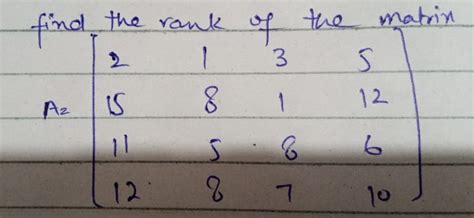 find the rank of the matrix
2 1 3 5
A= 15 8 1 12
11 5 8 6
12 8 7 10